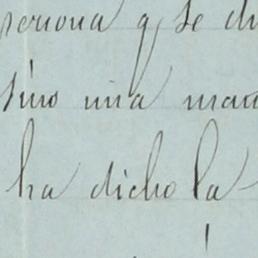 persona q. se di
sino una man
ha dicho la